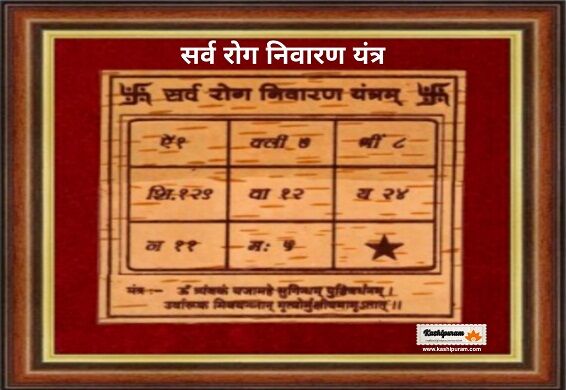 सर्व रोग निवारण यंत्र
सर्व रोग निवारण यंत्रम्
ऐं१ क्ली ७ श्रीं ८
शि.१२९ वा १२ य २४
न ११ मः ५
मंत्र :-- ॐ त्र्यंबकं यजामहे सुगिन्धम् पुष्टिवर्धनम् ।
उर्वारूक मिवबन्धनाम्
Kashipuram
www.kashipuram.com